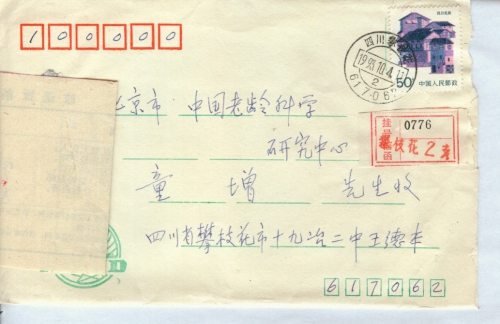 100000
四川民居
50
中国人民邮政
四川攀枝花
1995.10.4.
2
617062
北京市 中国老龄科学
研究中心
挂号函
0776
攀枝花2支
童 增 先生收
四川省攀枝花市十九冶二中王德丰
617062